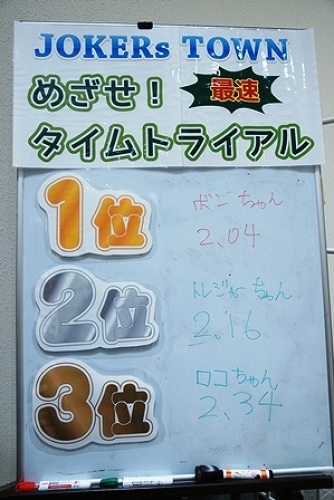 JOKERs TOWN
めざせ！ 最速
タイムトライアル
1位 ボンちゃん
2.04
2位 トレジャーちゃん
2.16
3位 ロコちゃん
2.34